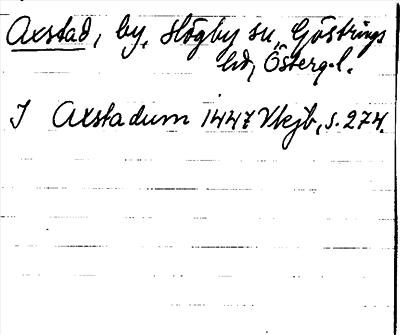 Axstad, by, Högby sn, Göstrings
hd, Österg.l.
J Axstadum 1447 Vkjb, s. 274.